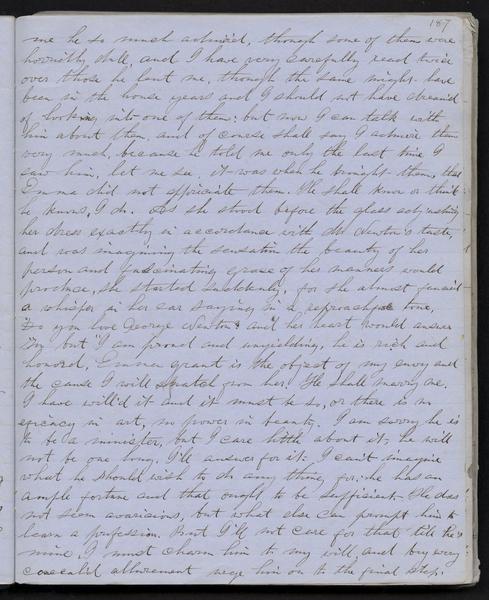 187
me he so much admired, though some of them were
horribly dull, and I have very carefully read twice
over those he lent me, though the same might have
been in the house years and I should not have dreamed
of looking into one of them: but now I can talk with
him about them, and of course shall say I admire them
very much, because he told me only the last time I
saw him, let me see, it was when he brought them, that
Emma did not appriciate them. He shall know or think
he knows, I do. As she stood before the glass adjusting
her dress exactly in accordance with Mr Newton's taste,
and was imagining the sensation the beauty of her
person and fascinating grace of her manners would
produce, she started suddenly, for she almost fancied
a whisper in her ear saying in a reproachful tone,
"Do you love George Newton" and her heart would answer
but "I am proud and unyielding, he is rich and
honord, Emma grant is the object of my envy and
the cause I will snatch from her. He shall marry me,
I have will'd it and it must be so, or there is no
eficacy in art, no power in beauty. I am sorry he is
to be a minister, but I care little about it, he will
not be one long, I'll answer for it. I can't imagine
what he should wish to do any thing for: he has an
ample fortune and that ought to be sufficient. He does
not seem avaricious, but what else can prompt him to
learn a profession. But I'll not care for that till he's
mine, I must charm him to my will and by every
conceal'd allurement urge him on to the final step.